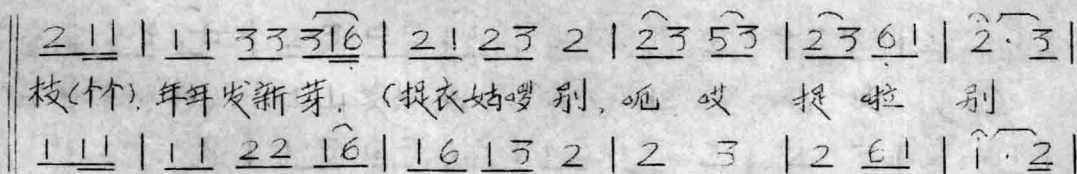 2 1 1 | 1 1 3 3 3 1 6 | 2 1 2 3 2 | 2 3 5 3 | 2 3 6 1 | 2 · 3 |
枝(个个). 年年发新芽. (捉衣姑啰别, 呃 哎 捉 啦 别
1 1 1 | 1 1 2 2 1 6 | 1 6 1 3 2 | 2 3 | 2 6 1 | 1 · 2 |